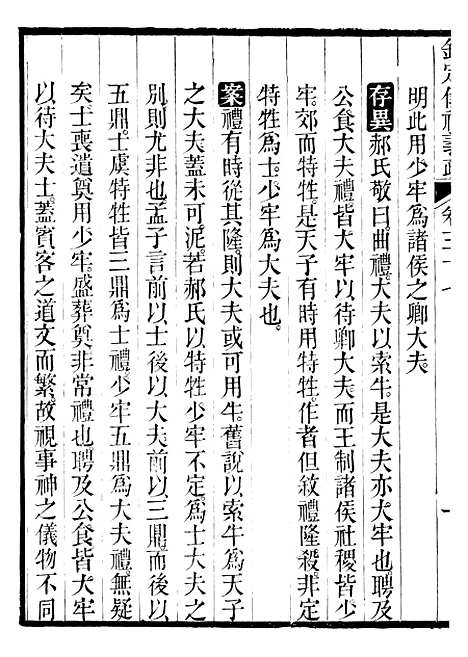 欽定儀禮義疏 卷三十七
明此用少牢爲諸侯之卿大夫。
存異郝氏敬曰。曲禮。大夫以索牛。是大夫亦大牢也。聘及
公食大夫禮。皆大牢以待卿大夫。而王制諸侯社稷皆少
牢。郊而特牲。是天子有時用特牲。作者但敘禮隆殺。非定
特牲爲士。少牢爲大夫也。
案禮有時從其隆。則大夫或可用牛。舊說以索牛爲天子
之大夫。蓋未可泥。若郝氏以特牲少牢不定爲士大夫之
別。則尤非也。孟子言前以士後以大夫。前以三鼎。而後以
五鼎。士虞特牲皆三鼎爲士禮。少牢五鼎爲大夫禮無疑
矣。士喪遣奠用少牢。盛葬奠非常禮也。聘及公食皆大牢
以待大夫士。蓋賓客之道文而繁。故視事神之儀物不同